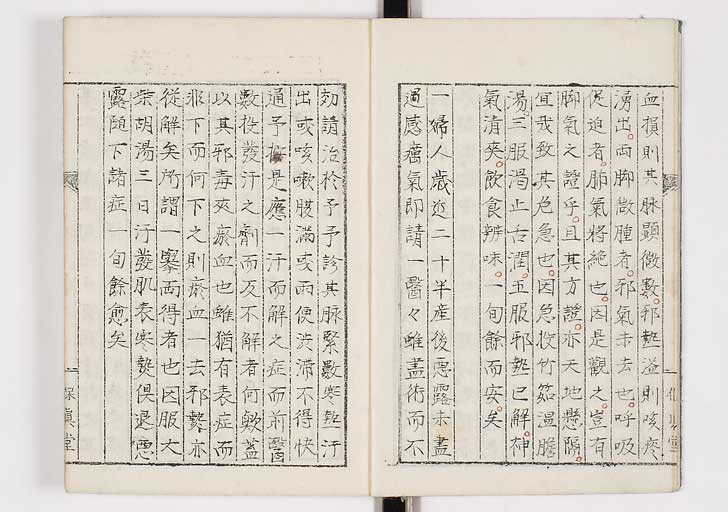 血損則其脉顕微數邪熱溢則咳疼
湧出兩脚微腫者邪氣未去也呼吸
促迫者肺氣將絶也因是觀之豈有
脚氣之證乎且其方證亦天地懸隔
宜哉致其危急也因急投竹筎温膽
湯三服渇止舌潤五服邪熱已解神
氣清爽飲食辨味一旬餘而安矣
一婦人歳近二十半産後惡露未盡
過感癘氣即請一醫々雖盡術而不
効請治於予予診其脉緊數寒熱汗
出或咳嗽腹滿或兩便渋滞不得快
通予按是應一汗而解之症而前醫
數投發汗之劑而反不解者何歟蓋
以其邪毒夾瘀血也雖猶有表症而
非下而何下之則瘀血一去邪熱亦
従解矣所謂一擧而得者也因服大
柴胡湯三日汗發肌表寒熱倶退惡
露随下諸症一旬餘愈矣
保眞堂